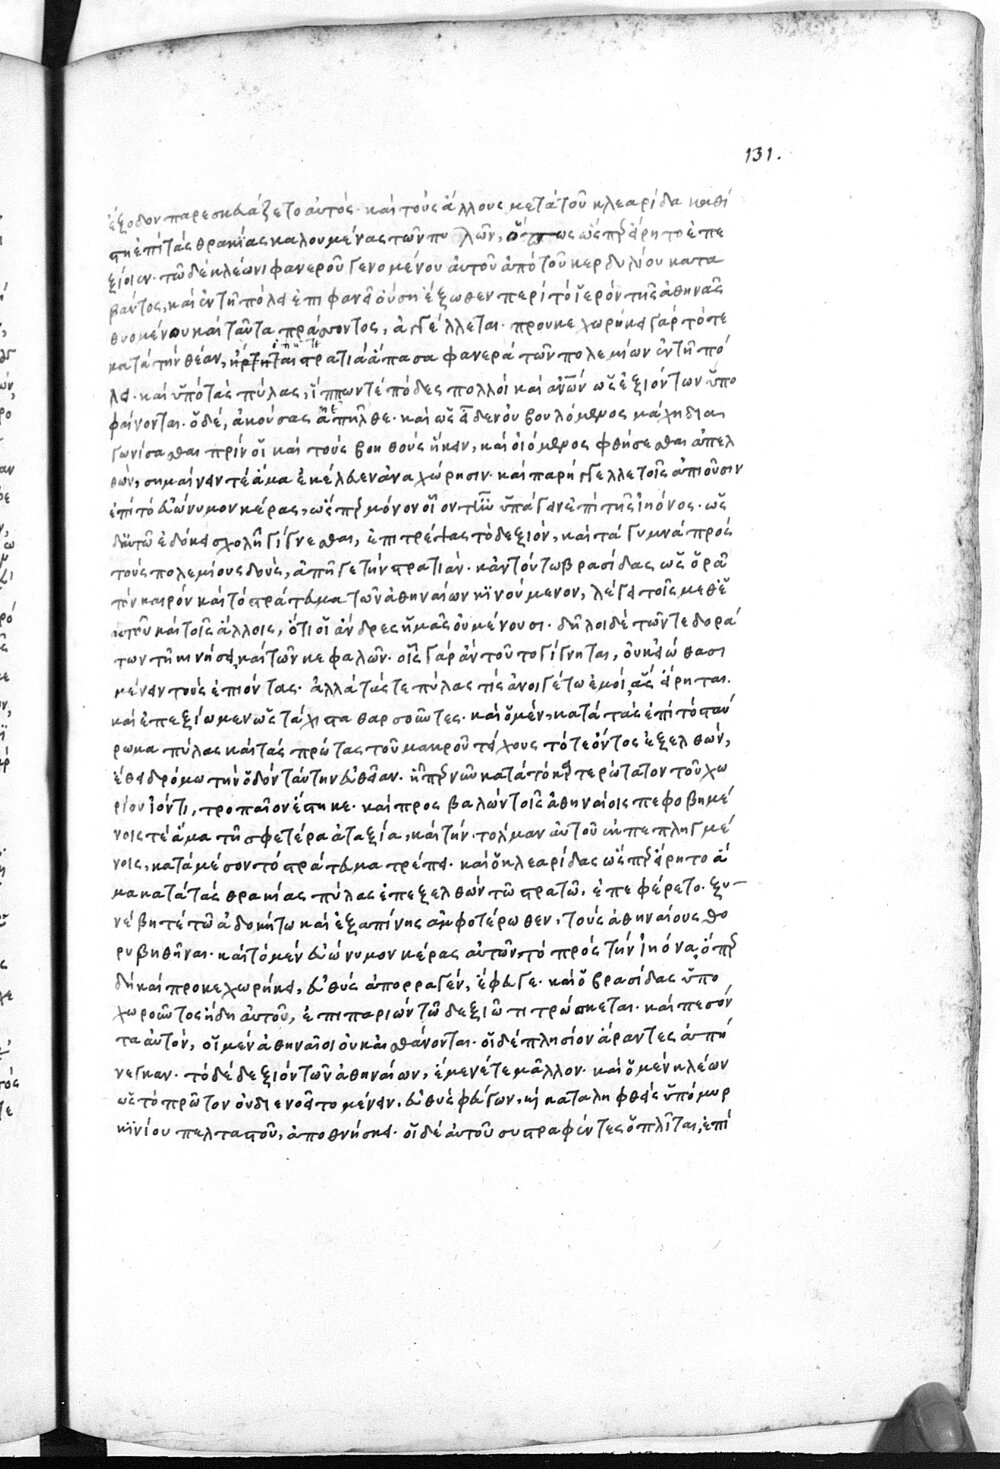 131.
ἔξοδον παρεσκευάζετο αὐτός· καὶ τοὺς ἄλλους μετὰ τοῦ κλεαρίδα καθί
στη ἐπὶ τὰς θρακίας καλουμένας τῶν πυλῶν, ὅπως ὥσπερ εἴρητο ἐπε
ξίοιεν· τῶ δὲ κλέωνι φανεροῦ γενομένου αὐτοῦ ἀπὸ τοῦ κερδυλίου κατα
βάντος, καὶ ἐν τῆ πόλει ἐπιφανεῖ οὔση ἔξωθεν περὶ τὸ ἱερὸν τῆς ἀθηνᾶς
θυομένου καὶ ταῦτα πράσσοντος, ἀγγέλλεται· προυκεχωρήκει γὰρ τότε
κατὰ τὴν θέαν, ὅτι ἥ τε στρατιὰ ἅπασα φανερὰ τῶν πολεμίων ἐν τῆ πό
λει· καὶ ὑπὸ τὰς πύλας, ἵππων τὲ πόδες πολλοὶ καὶ ἀνθρώπων ὡς ἐξιόντων ὑπο
φαίνονται· ὁ δὲ, ἀκούσας ἐπῆλθε· καὶ ὡς εἶδεν οὐ βουλόμενος μάχη δια
γωνίσασθαι πρίν οἱ καὶ τοὺς βοηθοὺς ἥκειν, καὶ οἰόμενος φθήσεσθαι ἀπελ
θὼν, σημαίνειν τὲ ἅμα ἐκέλευεν ἀναχώρησιν· καὶ παρήγγελλε τοῖς ἀπιοῦσιν
ἐπὶ τὸ εὐώνυμον κέρας, ὥσπερ μόνον οἷόν τ' ἦν ὑπάγειν ἐπὶ τῆς ἠιόνος· ὡς
δ' αὐτῶ ἐδόκει σχολῆ γίγνεσθαι, ἐπιτρέψας τὸ δεξιὸν, καὶ τὰ γυμνὰ πρὸς
τοὺς πολεμίους δοὺς, ἀπῆγε τὴν στρατιάν· κἀν τούτω βρασίδας ὡς ὁρᾶ
τὸν καιρὸν καὶ τὸ στράτευμα τῶν ἀθηναίων κινούμενον, λέγει τοῖς μεθ' ἑ
αυτοῦ καὶ τοῖς ἄλλοις, ὅτι οἱ ἄνδρες ἡμᾶς οὐ μένουσι· δῆλοι δὲ τῶν τε δορά
των τῆ κινήσει καὶ τῶν κεφαλῶν· οἷς γὰρ ἂν τοῦτο γίγνηται, οὐκ εἰώθασι
μένειν τοὺς ἐπιόντας· ἀλλὰ τάς τε πύλας τὶς ἀνοιγέτω ἐμοὶ ἃς εἴρηται·
καὶ ἐπεξίωμεν ὡς τάχιστα θαρσοῦντες· καὶ ὁ μὲν, κατὰ τὰς ἐπὶ τὸ σταύ
ρωμα πύλας καὶ τὰς πρώτας τοῦ μακροῦ τείχους τότε ὄντος ἐξελθὼν,
ἔθει δρόμω τὴν ὁδὸν ταύτην εὐθεῖαν· ἧπερ νῦν κατὰ τὸ καρτερώτατον τοῦ χω
ρίου ἰόντι, τροπαῖον ἕστηκε· καὶ προσβαλὼν τοῖς ἀθηναίοις πεφοβημέ
νοις τὲ ἅμα τῆ σφετέρα ἀταξία, καὶ τὴν τόλμαν αὐτοῦ ἐκπεπληγμέ
νοις, κατὰ μέσον τὸ στράτευμα τρέπει· καὶ ὁ κλεαρίδας ὥσπερ εἴρητο ἅ
μα κατὰ τὰς θρακίας πύλας ἐπεξελθὼν τῶ στρατῶ, ἐπεφέρετο· ξυ
νέβη τὲ τῶ ἀδοκήτω καὶ ἐξαπίνης ἀμφοτέρωθεν, τοὺς ἀθηναίους θο
ρυβηθῆναι· καὶ τὸ μὲν εὐώνυμον κέρας αὐτῶν τὸ πρὸς τὴν ἠιόνα, ὅπερ
δὴ καὶ προκεχωρήκει, εὐθὺς ἀπορραγὲν, ἔφευγε· καὶ ὁ βρασίδας ὑπο
χωροῦντος ἤδη αὐτοῦ, ἐπιπαριὼν τῶ δεξιῶ τιτρώσκεται· καὶ πεσόν
τα αὐτὸν, οἱ μὲν ἀθηναῖοι οὐκ αἰσθάνονται· οἱ δὲ πλησίον ἄραντες ἀπή
νεγκαν· τὸ δὲ δεξιὸν τῶν ἀθηναίων, ἔμενέ τε μᾶλλον· καὶ ὁ μὲν κλέων
ὡς τὸ πρῶτον οὐ διενοεῖτο μένειν, εὐθὺς φεύγων, καὶ καταληφθεὶς ὑπὸ μυρ
κινίου πελταστοῦ, ἀποθνήσκει· οἱ δὲ αὐτοῦ συστραφέντες ὁπλῖται, ἐπὶ